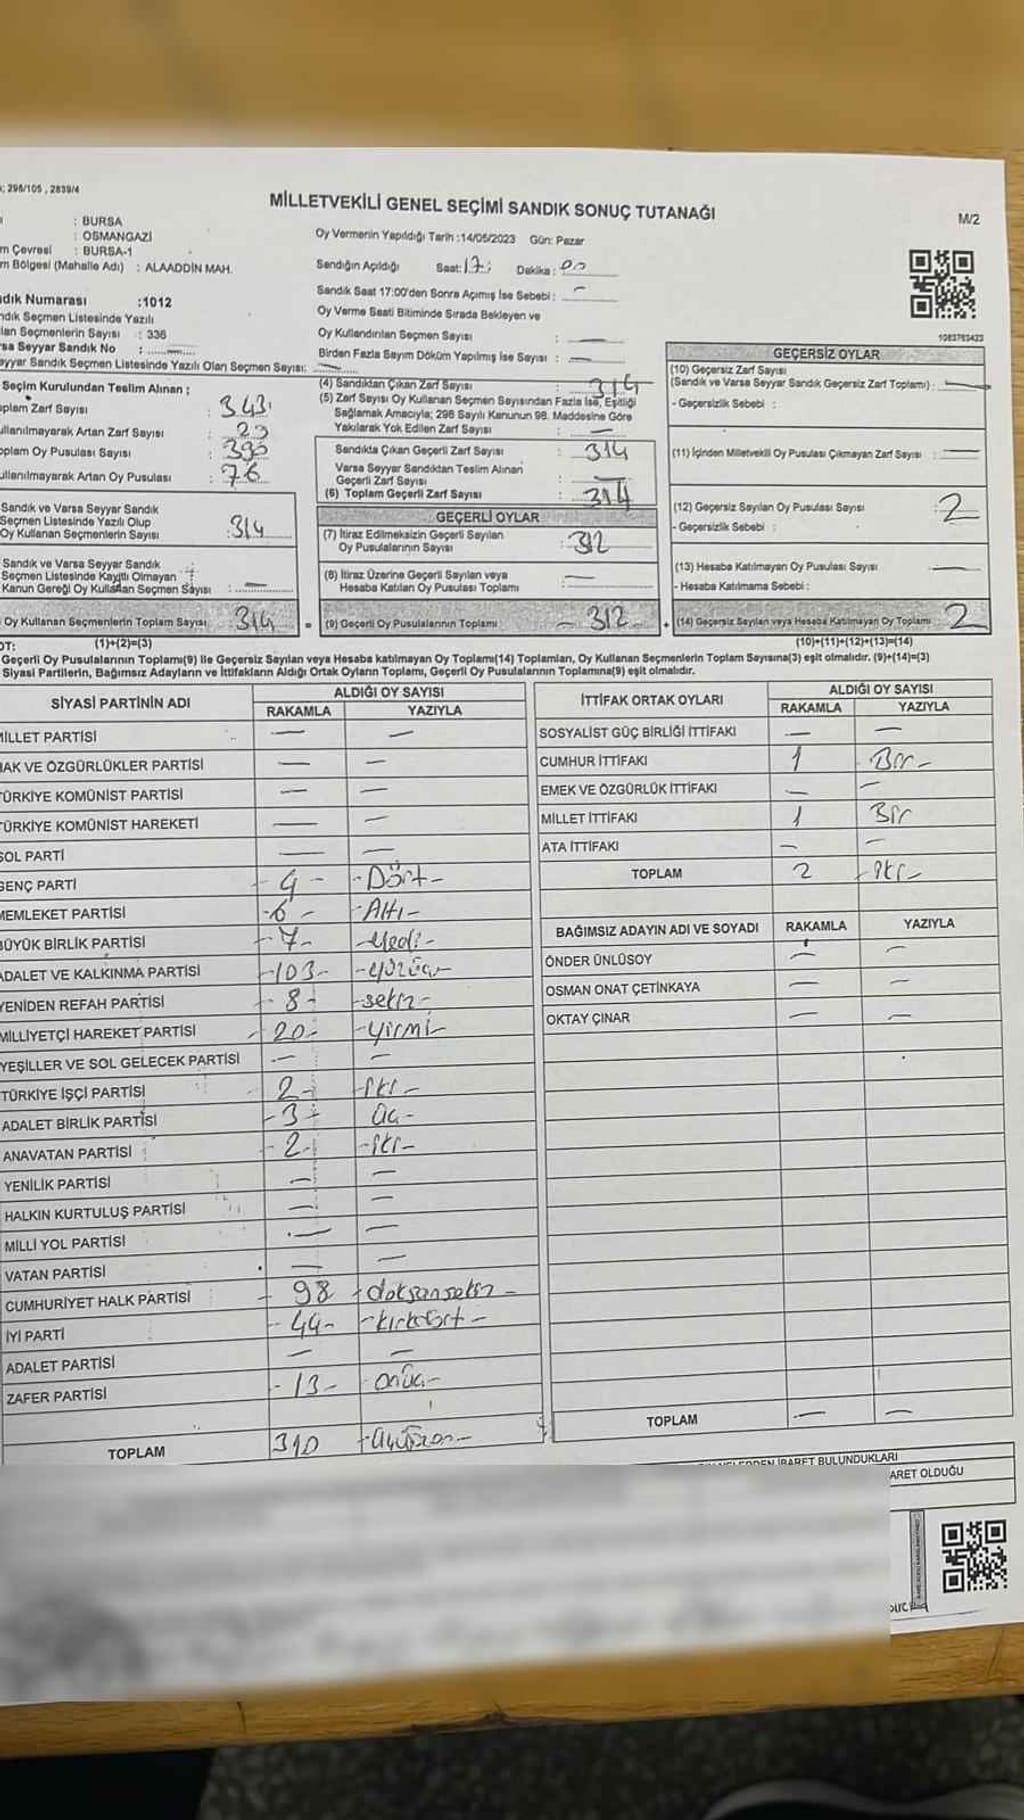 298/105 , 2839/4
MİLLETVEKİLİ GENEL SEÇİMİ SANDIK SONUÇ TUTANAĞI
M/2
: BURSA
: OSMANGAZİ
m Çevresi : BURSA-1
m Bölgesi (Mahalle Adı) : ALAADDİN MAH.
Oy Vermenin Yapıldığı Tarih :14/05/2023 Gün: Pazar
Sandığın Açıldığı Saat: 17: Dakika : 00
Sandık Saat 17:00'den Sonra Açımış İse Sebebi : –
Oy Verme Saati Bitiminde Sırada Bekleyen ve
Oy Kullandırılan Seçmen Sayısı : —
Birden Fazla Sayım Döküm Yapılmış İse Sayısı : —
1083763423
ndık Numarası :1012
ndık Seçmen Listesinde Yazılı
lan Seçmenlerin Sayısı : 336
rsa Seyyar Sandık No : —
eyyar Sandık Seçmen Listesinde Yazılı Olan Seçmen Sayısı: —
Seçim Kurulundan Teslim Alınan ;
plam Zarf Sayısı : 343
ullanılmayarak Artan Zarf Sayısı : 29
oplam Oy Pusulası Sayısı : 390
ullanılmayarak Artan Oy Pusulası : 76
Sandık ve Varsa Seyyar Sandık
Seçmen Listesinde Yazılı Olup
Oy Kullanan Seçmenlerin Sayısı :314
Sandık ve Varsa Seyyar Sandık
Seçmen Listesinde Kayıtlı Olmayan
Kanun Gereği Oy Kullanan Seçmen Sayısı : —
Oy Kullanan Seçmenlerin Toplam Sayısı 314
(1)+(2)=(3)
(4) Sandıktan Çıkan Zarf Sayısı : 314
(5) Zarf Sayısı Oy Kullanan Seçmen Sayısından Fazla İse, Eşitliği
Sağlamak Amacıyla; 298 Sayılı Kanunun 98. Maddesine Göre
Yakılarak Yok Edilen Zarf Sayısı : —
Sandıkta Çıkan Geçerli Zarf Sayısı : 314
Varsa Seyyar Sandıktan Teslim Alınan
Geçerli Zarf Sayısı : —
(6) Toplam Geçerli Zarf Sayısı : 314
GEÇERLİ OYLAR
(7) İtiraz Edilmeksizin Geçerli Sayılan
Oy Pusulalarının Sayısı : 312
(8) İtiraz Üzerine Geçerli Sayılan veya
Hesaba Katılan Oy Pusulası Toplamı : —
= (9) Geçerli Oy Pusulalarının Toplamı – 312
GEÇERSİZ OYLAR
(10) Geçersiz Zarf Sayısı
(Sandık ve Varsa Seyyar Sandık Geçersiz Zarf Toplamı) : —
- Geçersizlik Sebebi :
(11) İçinden Milletvekili Oy Pusulası Çıkmayan Zarf Sayısı : —
(12) Geçersiz Sayılan Oy Pusulası Sayısı : 2
- Geçersizlik Sebebi :
(13) Hesaba Katılmayan Oy Pusulası Sayısı : —
- Hesaba Katılmama Sebebi :
+ (14) Geçersiz Sayılan veya Hesaba Katılmayan Oy Toplamı 2
(10)+(11)+(12)+(13)=(14)
OT:
Geçerli Oy Pusulalarının Toplamı(9) ile Geçersiz Sayılan veya Hesaba katılmayan Oy Toplamı(14) Toplamları, Oy Kullanan Seçmenlerin Toplam Sayısına(3) eşit olmalıdır. (9)+(14)=(3)
Siyasi Partilerin, Bağımsız Adayların ve İttifakların Aldığı Ortak Oyların Toplamı, Geçerli Oy Pusulalarının Toplamına(9) eşit olmalıdır.
SİYASİ PARTİNİN ADI ALDIĞI OY SAYISI
RAKAMLA YAZIYLA
MİLLET PARTİSİ — —
HAK VE ÖZGÜRLÜKLER PARTİSİ — —
TÜRKİYE KOMÜNİST PARTİSİ — —
TÜRKİYE KOMÜNİST HAREKETİ — —
SOL PARTİ — —
GENÇ PARTİ - 4 - -Dört-
MEMLEKET PARTİSİ -6- -Altı-
BÜYÜK BİRLİK PARTİSİ -7- -Yedi-
ADALET VE KALKINMA PARTİSİ -103- -yüzüç-
YENİDEN REFAH PARTİSİ - 8 - -sekiz-
MİLLİYETÇİ HAREKET PARTİSİ - 20- -yirmi-
YEŞİLLER VE SOL GELECEK PARTİSİ — —
TÜRKİYE İŞÇİ PARTİSİ - 2 - -iki-
ADALET BİRLİK PARTİSİ - 3 - üç-
ANAVATAN PARTİSİ - 2 - -iki-
YENİLİK PARTİSİ — —
HALKIN KURTULUŞ PARTİSİ — —
MİLLİ YOL PARTİSİ — —
VATAN PARTİSİ — —
CUMHURİYET HALK PARTİSİ - 98 -doksansekiz-
İYİ PARTİ - 44- -kırkdört-
ADALET PARTİSİ — —
ZAFER PARTİSİ - 13 - - onüç-
TOPLAM 310 -üçyüzon-
İTTİFAK ORTAK OYLARI ALDIĞI OY SAYISI
RAKAMLA YAZIYLA
SOSYALİST GÜÇ BİRLİĞİ İTTİFAKI — —
CUMHUR İTTİFAKI 1 Bir-
EMEK VE ÖZGÜRLÜK İTTİFAKI — —
MİLLET İTTİFAKI 1 Bir
ATA İTTİFAKI — —
TOPLAM 2 -iki-
BAĞIMSIZ ADAYIN ADI VE SOYADI RAKAMLA YAZIYLA
ÖNDER ÜNLÜSOY — —
OSMAN ONAT ÇETİNKAYA — —
OKTAY ÇINAR — —
TOPLAM — —
İBARET BULUNDUKLARI
ARET OLDUĞU